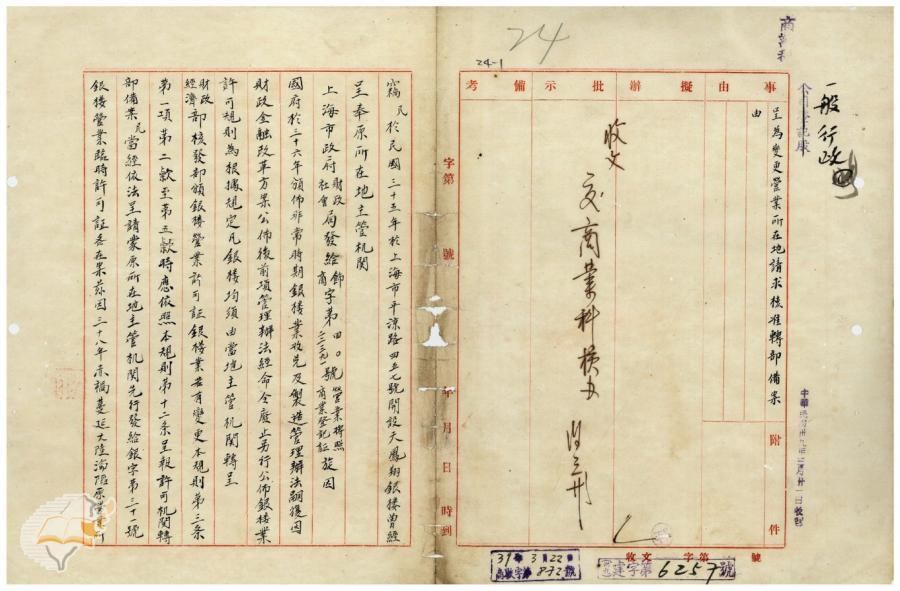 商業科
公司登記股
一般行政
24
24-1
事由
擬辦
批示
備考
呈為變更營業所在地請求核准轉部備案由
附件
收文
交商業科擬办
中華民國卅九年三月廿一日收到
字第 號 年 月 日 時到
收文 字第 號
39年3月22日
商收字第872號
建字第6257號
竊民於民國三十五年於上海市平凉路四五七號開設天鳳翔銀楼曾經
呈奉原所在地主管机関
上海市政府財政社會局發給飾商字第四〇號二三三九一號營業牌照商業登記証旋因
國府於三十六年頒佈非常時期銀楼業收兑及製造管理辦法嗣復因
財政金融改革方案公佈後前項管理辦法經命令廢止另行公佈銀楼業
許可規則為根據規定凡銀楼均須由當地主管机関轉呈
財政經濟部核發部頒銀楼營業許可証銀楼業若有變更本規則第三条
第一項第二款至第五款時應依照本規則第十二条呈報許可机関轉
部備案民當經依法呈請蒙原所在地主管机関先行發給銀字第三十一號
銀楼營業臨時許可証各在案茲因三十八年赤禍蔓延大陸淪陷原營業所